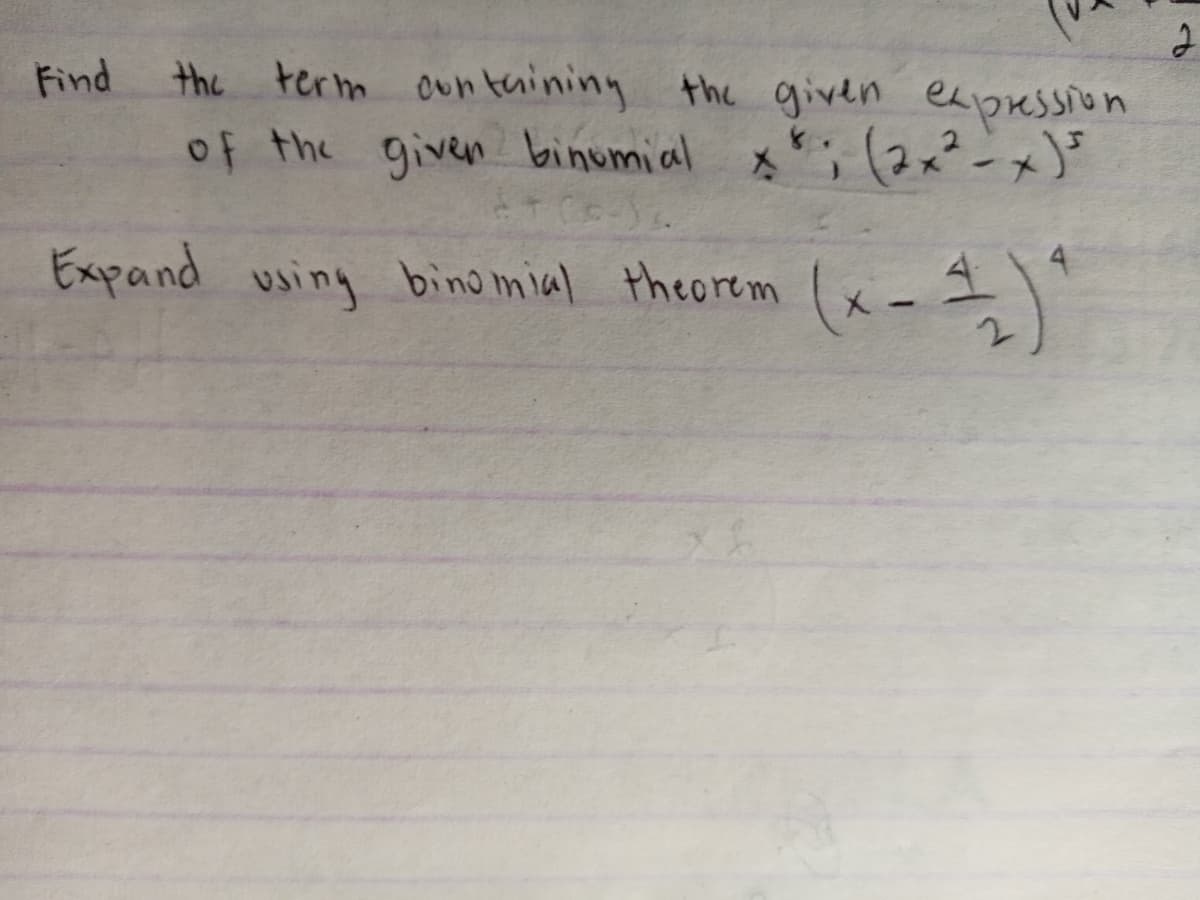 2
Find the term containing the given expression
of the given binomial x⁸; (2x² - x)⁵
Expand using binomial theorem (x - 4/2)⁴